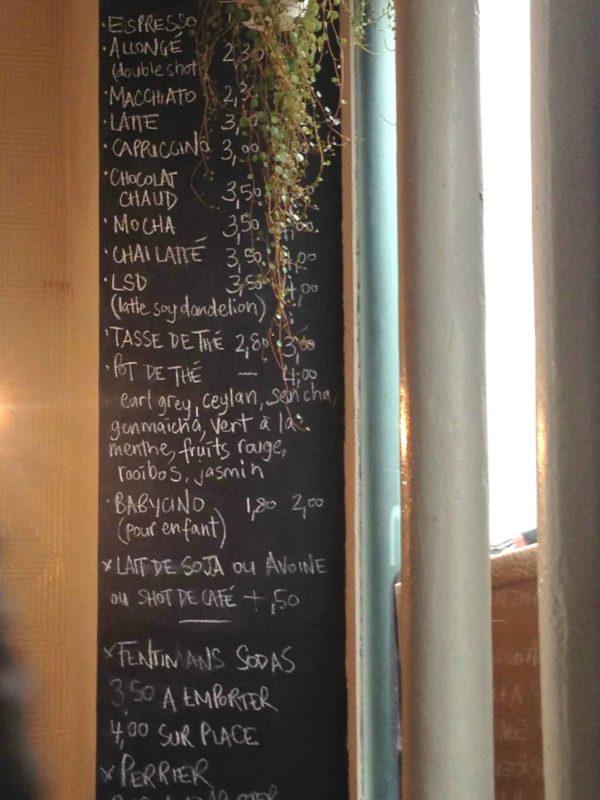 · ESPRESSO
· ALLONGÉ 2,30
(double shot
· MACCHIATO 2,3
· LATTE 3,
· CAPPUCCINO 3,00
· CHOCOLAT
CHAUD 3,50
· MOCHA 3,50 4,00
· CHAI LATTÉ 3,50 4,00
· LSD 3,50 4,00
(latte soy dandelion)
· TASSE DE THÉ 2,80
· POT DE THÉ — 4,00
earl grey, ceylan, sencha,
genmaicha, vert à la
menthe, fruits rouge,
rooibos, jasmin
· BABYCINO 1,80 2,00
(pour enfant)
× LAIT DE SOJA ou AVOINE
ou SHOT DE CAFÉ +,50
× FENTIMANS SODAS
3,50 A EMPORTER
4,00 SUR PLACE
× PERRIER